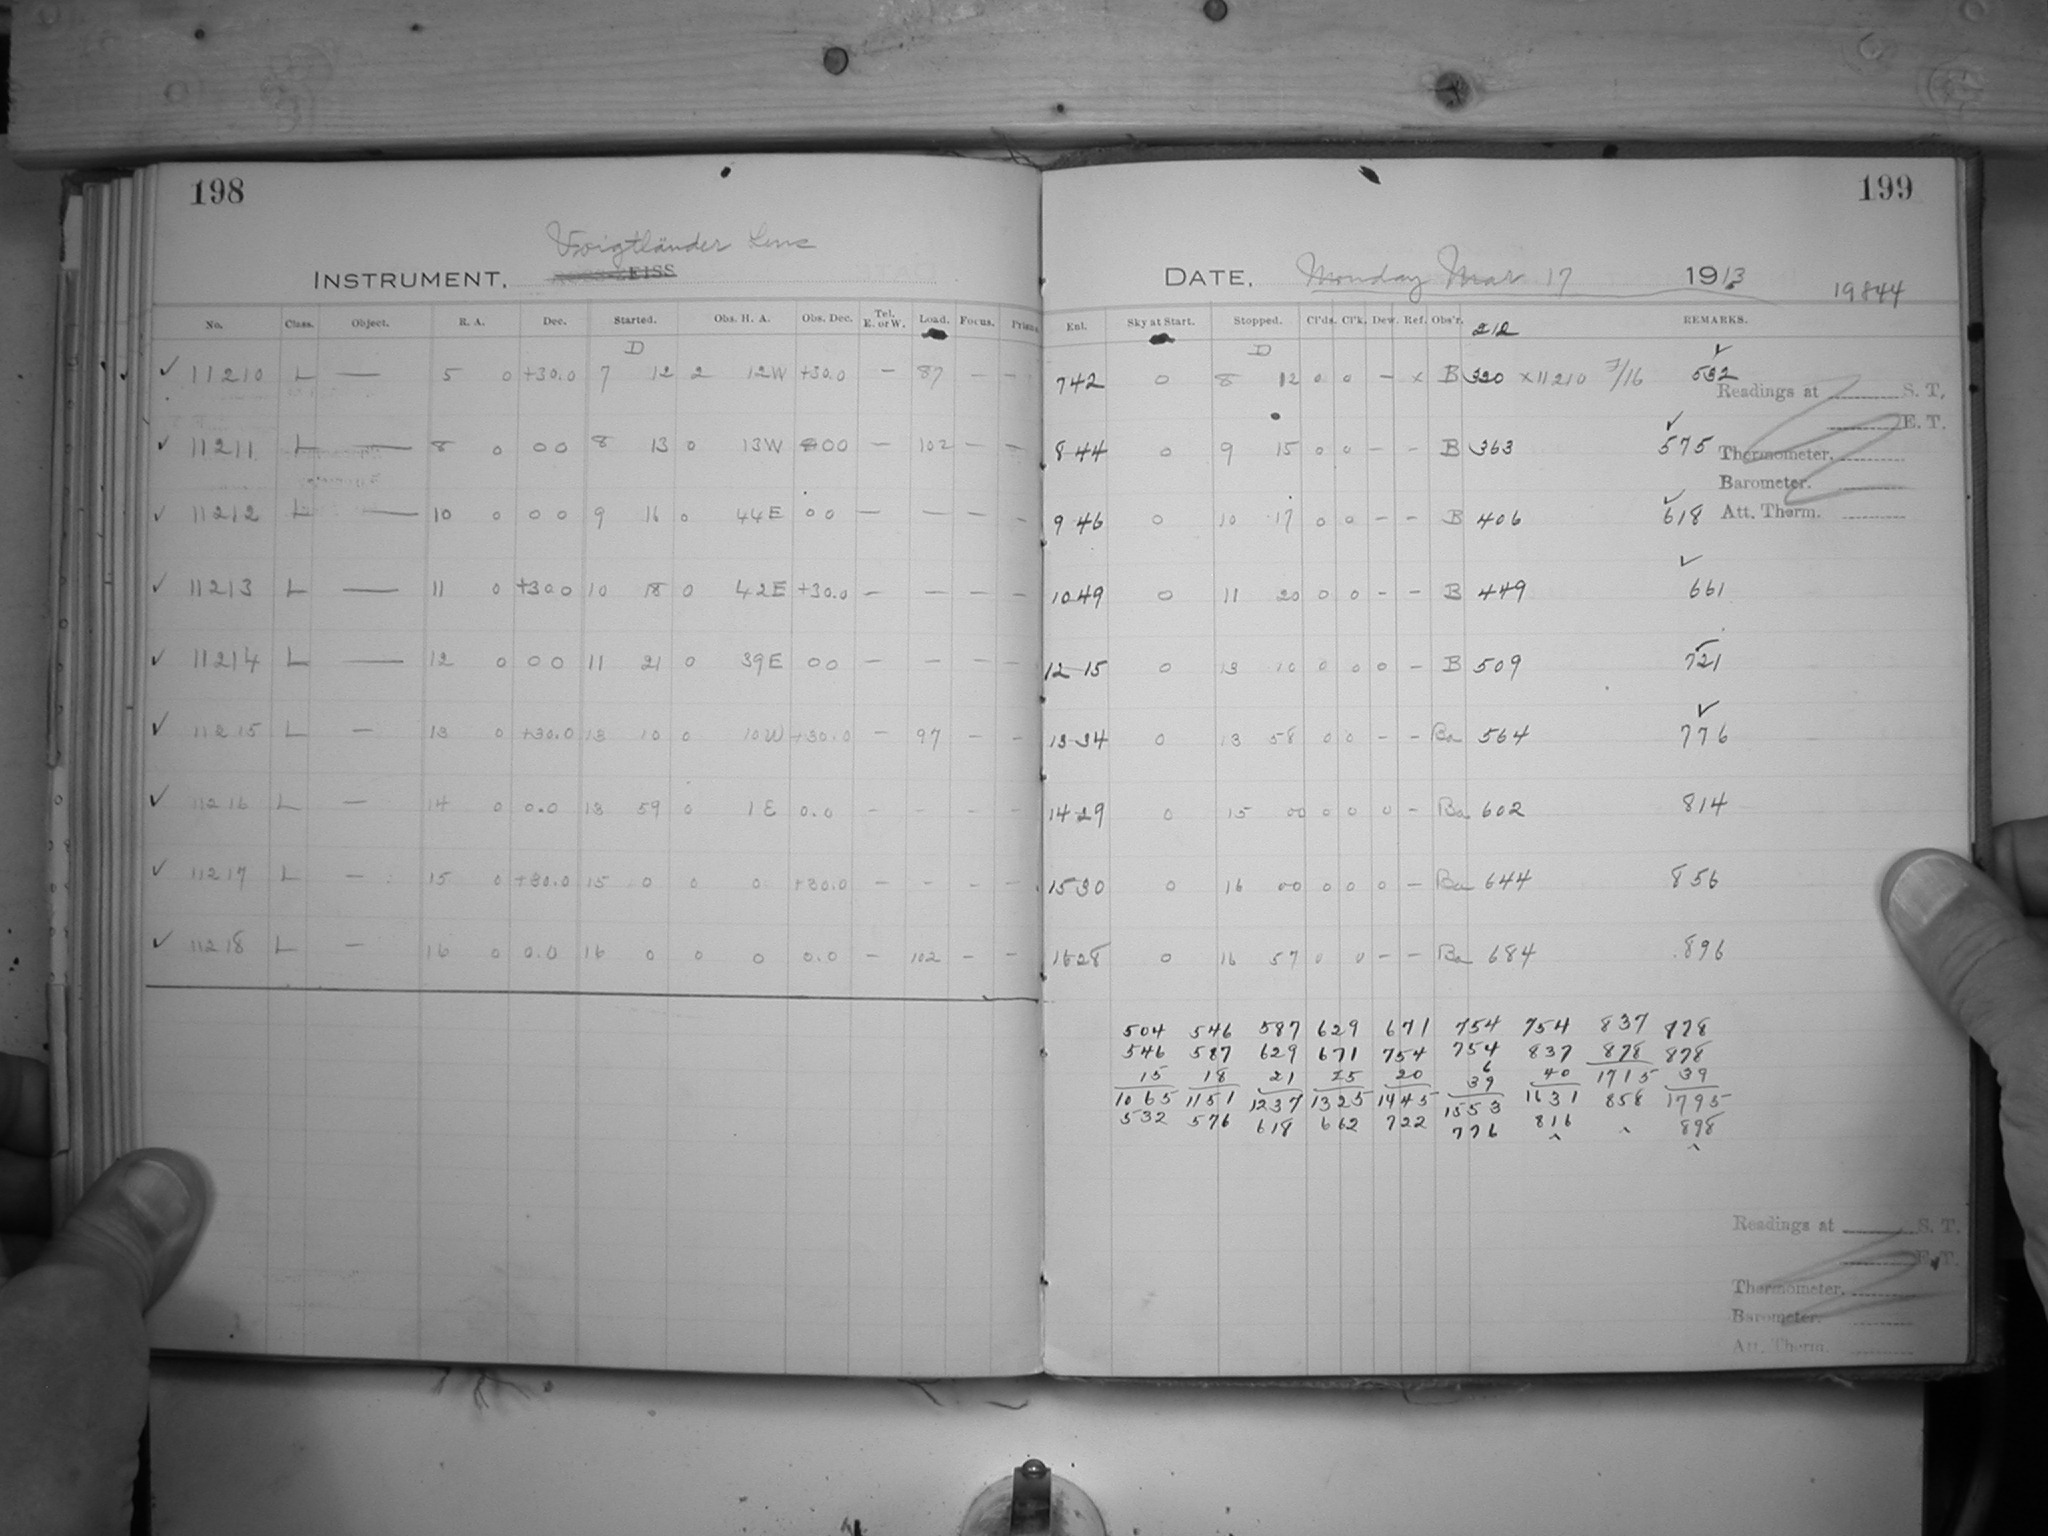 198
Voigtländer Lens
INSTRUMENT, EISS
No. Class. Object. R. A. Dec. Started. Obs. H. A. Obs. Dec. Tel. E. or W. Load. Focus. Prism
D
11210 L — 5 0 +30.0 7 12 2 12W +30.0 — 87 — —
11211 L — 8 0 00 8 13 0 13W 00 — 102 — —
11212 L — 10 0 00 9 16 0 44E 00 — — — —
11213 L — 11 0 +30.0 10 18 0 42E +30.0 — — — —
11214 L — 12 0 00 11 21 0 39E 00 — — — —
11215 L — 13 0 +30.0 13 10 0 10W +30.0 — 97 — —
11216 L — 14 0 0.0 13 59 0 1E 0.0 — — — —
11217 L — 15 0 +30.0 15 0 0 0 +30.0 — — — —
11218 L — 16 0 0.0 16 0 0 0 0.0 — 102 — —
199
DATE, Monday Mar 17 1913 19844
Enl. Sky at Start. Stopped. Cl'ds. Cl'k. Dew. Ref. Obs'r. 212 REMARKS.
D
742 0 8 12 0 0 — x B 320 x11210 7/16 532
Readings at S. T.
E. T.
844 0 9 15 0 0 — — B 363 575
Thermometer.
Barometer.
946 0 10 17 0 0 — — B 406 618
Att. Therm.
1049 0 11 20 0 0 — — B 449 661
12-15 0 13 10 0 0 0 — B 509 721
13-34 0 13 58 0 0 — — Ba 564 776
14-29 0 15 00 0 0 0 — Ba 602 814
1530 0 16 00 0 0 0 — Ba 644 856
1628 0 16 57 0 0 — — Ba 684 896
504 546 587 629 671 754 754 837 878
546 587 629 671 754 754 837 878 878
15 18 21 25 20 6 40 1715 39
39
1065 1151 1237 1325 1445 1553 1631 858 1795
532 576 618 662 722 776 816 898
Readings at S. T.
E. T.
Thermometer.
Barometer.
Att. Therm.